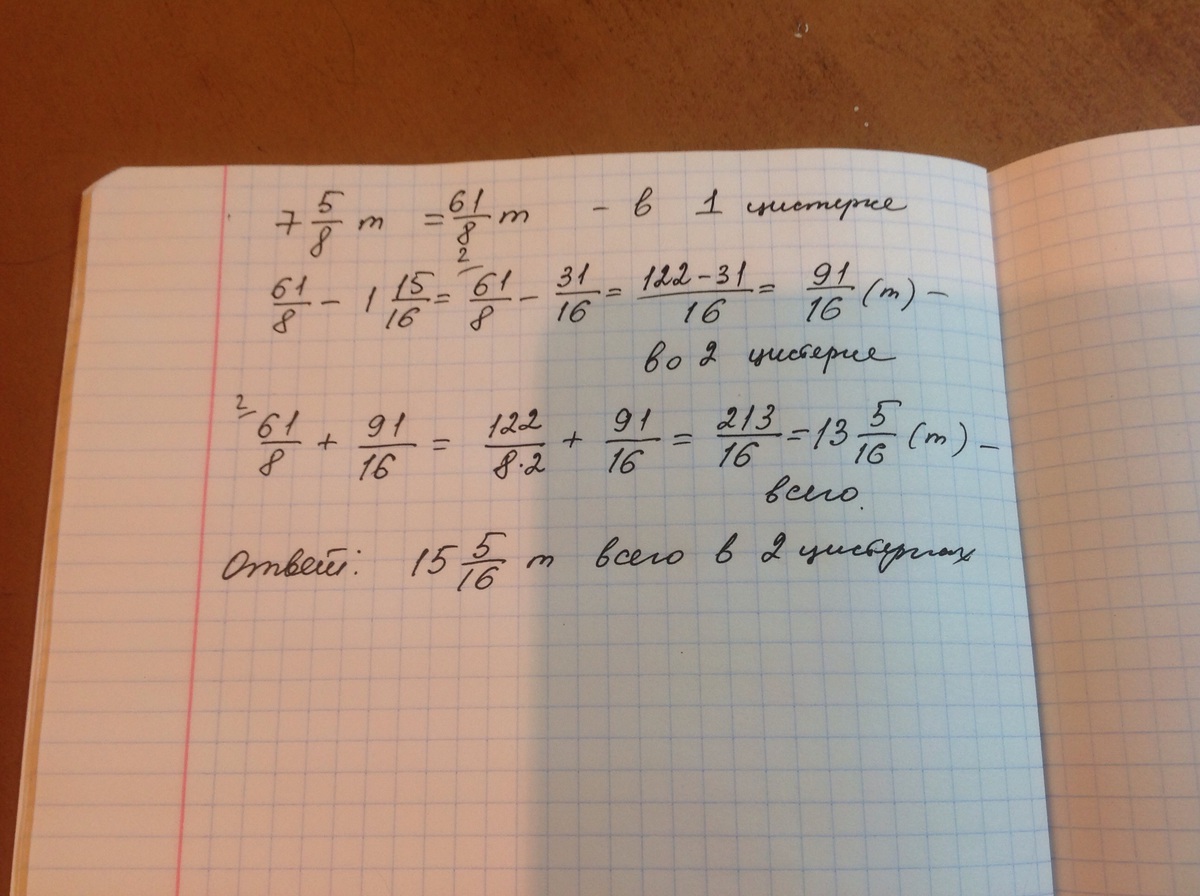 7 5/8 т = 61/8 т - в 1 цистерне
61/8 - 1 15/16 = 61/8 ² - 31/16 = (122-31)/16 = 91/16 (т) -
во 2 цистерне
²61/8 + 91/16 = 122/(8·2) + 91/16 = 213/16 = 13 5/16 (т) -
всего.
Ответ: 15 5/16 т всего в 2 цистернах